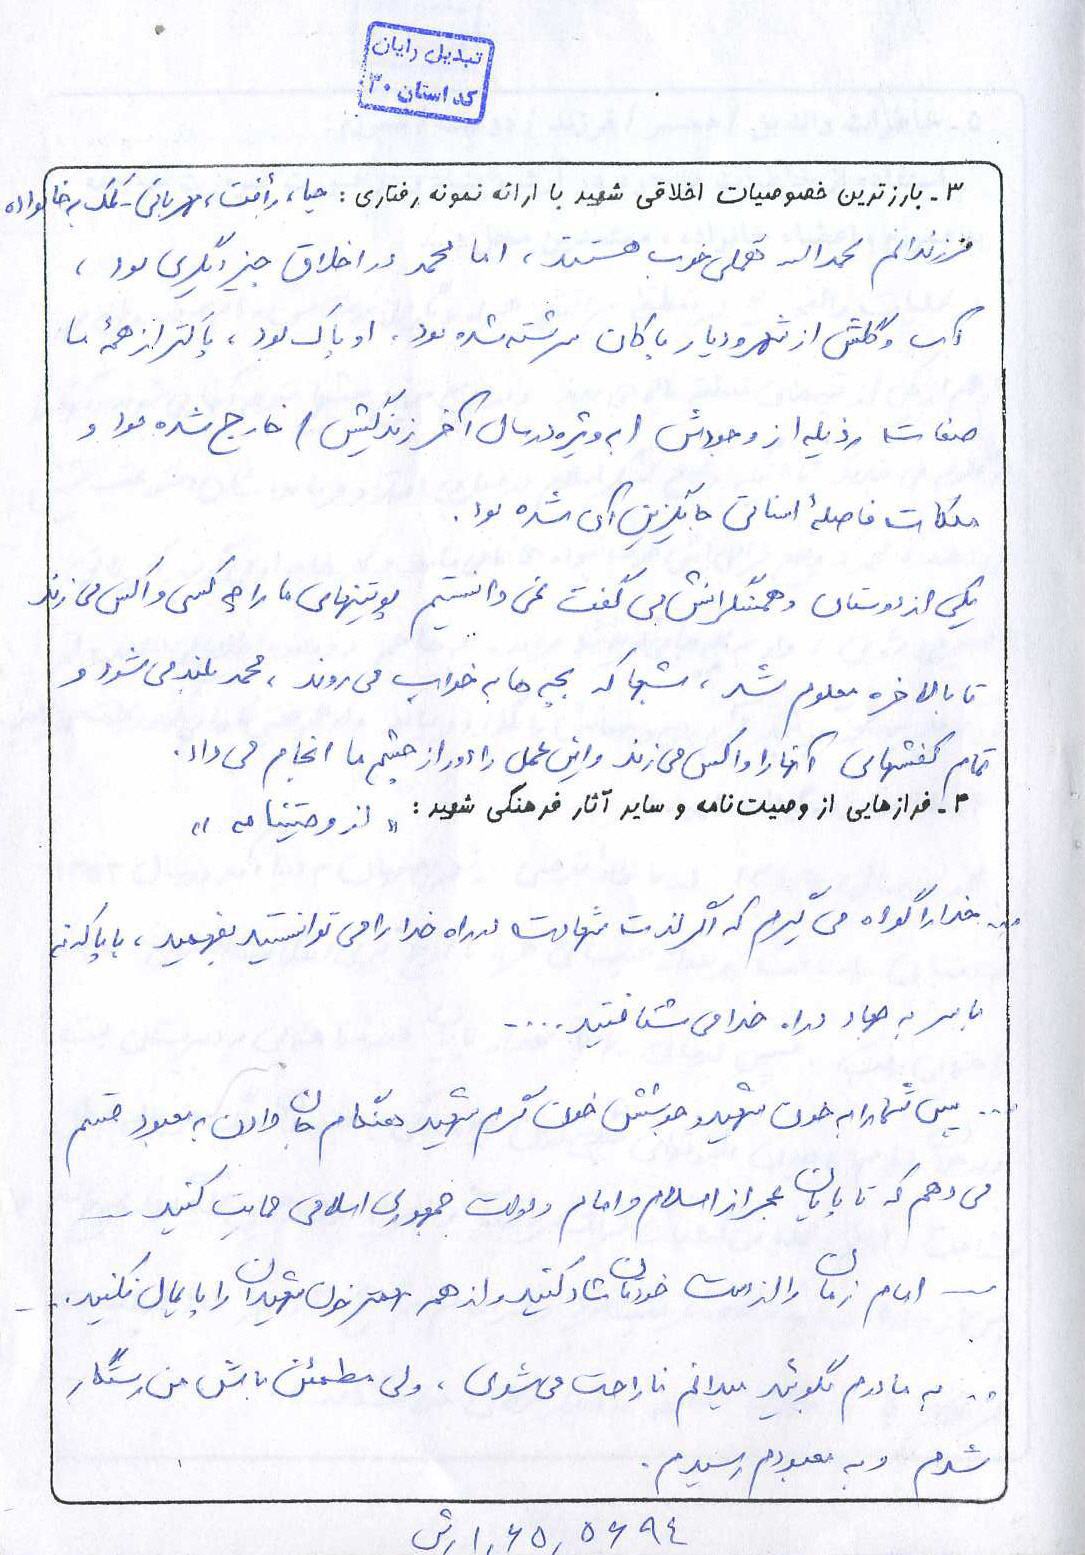 تبدیل رایان
کد استان ۳۰
۳ـ بارزترین خصوصیات اخلاقی شهید با ارائه نمونه رفتاری: حیا، رأفت، مهربانی ـ کمک به خانواده
فرزندانم محمداله همگی خوب هستند، اما محمد در اخلاق چیز دیگری بود،
آب و گلش از شهر و دیار پاکان سرشته شده بود، او پاک بود، پاکتر از همهٔ ما
صفات رذیله از وجودش (به ویژه در سال آخر زندگیش) خارج شده بود و
ملکات فاضلهٔ انسانی جایگزین آن شده بود.
یکی از دوستان و همسنگرانش می گفت نمی دانستیم پوتینهای ما را چه کسی واکس می زند
تا بالاخره معلوم شد، شبها که بچه ها به خواب می روند، محمد بلند می شود و
تمام کفشهای آنها را واکس می زند و این عمل را دور از چشم ما انجام می داد.
۴ـ فرازهایی از وصیت‌نامه و سایر آثار فرهنگی شهید: «از وصیتنامه»
... خدا را گواه می گیرم که اگر لذت شهادت در راه خدا را می توانستید بفهمید، با پا که نه
با سر به جهاد در راه خدا می شتافتید....
... پس شما را به خون شهید و جوشش خون گرم شهید هنگام جان دادن به معبود قسم
می دهم که تا پایان عمر از اسلام و امام و دولت جمهوری اسلامی حمایت کنید ـ
ـ امام زمان را از دست خودتان شاد کنید و از همه مهمتر خون شهیدان را پایمال نکنید...
... به مادرم بگوئید میدانم ناراحت می شوی، ولی مطمئن باش من رستگار
شدم و به معبودم رسیدم.
۵۶۹۴ ر ۶۵ ر ۱ ر ش